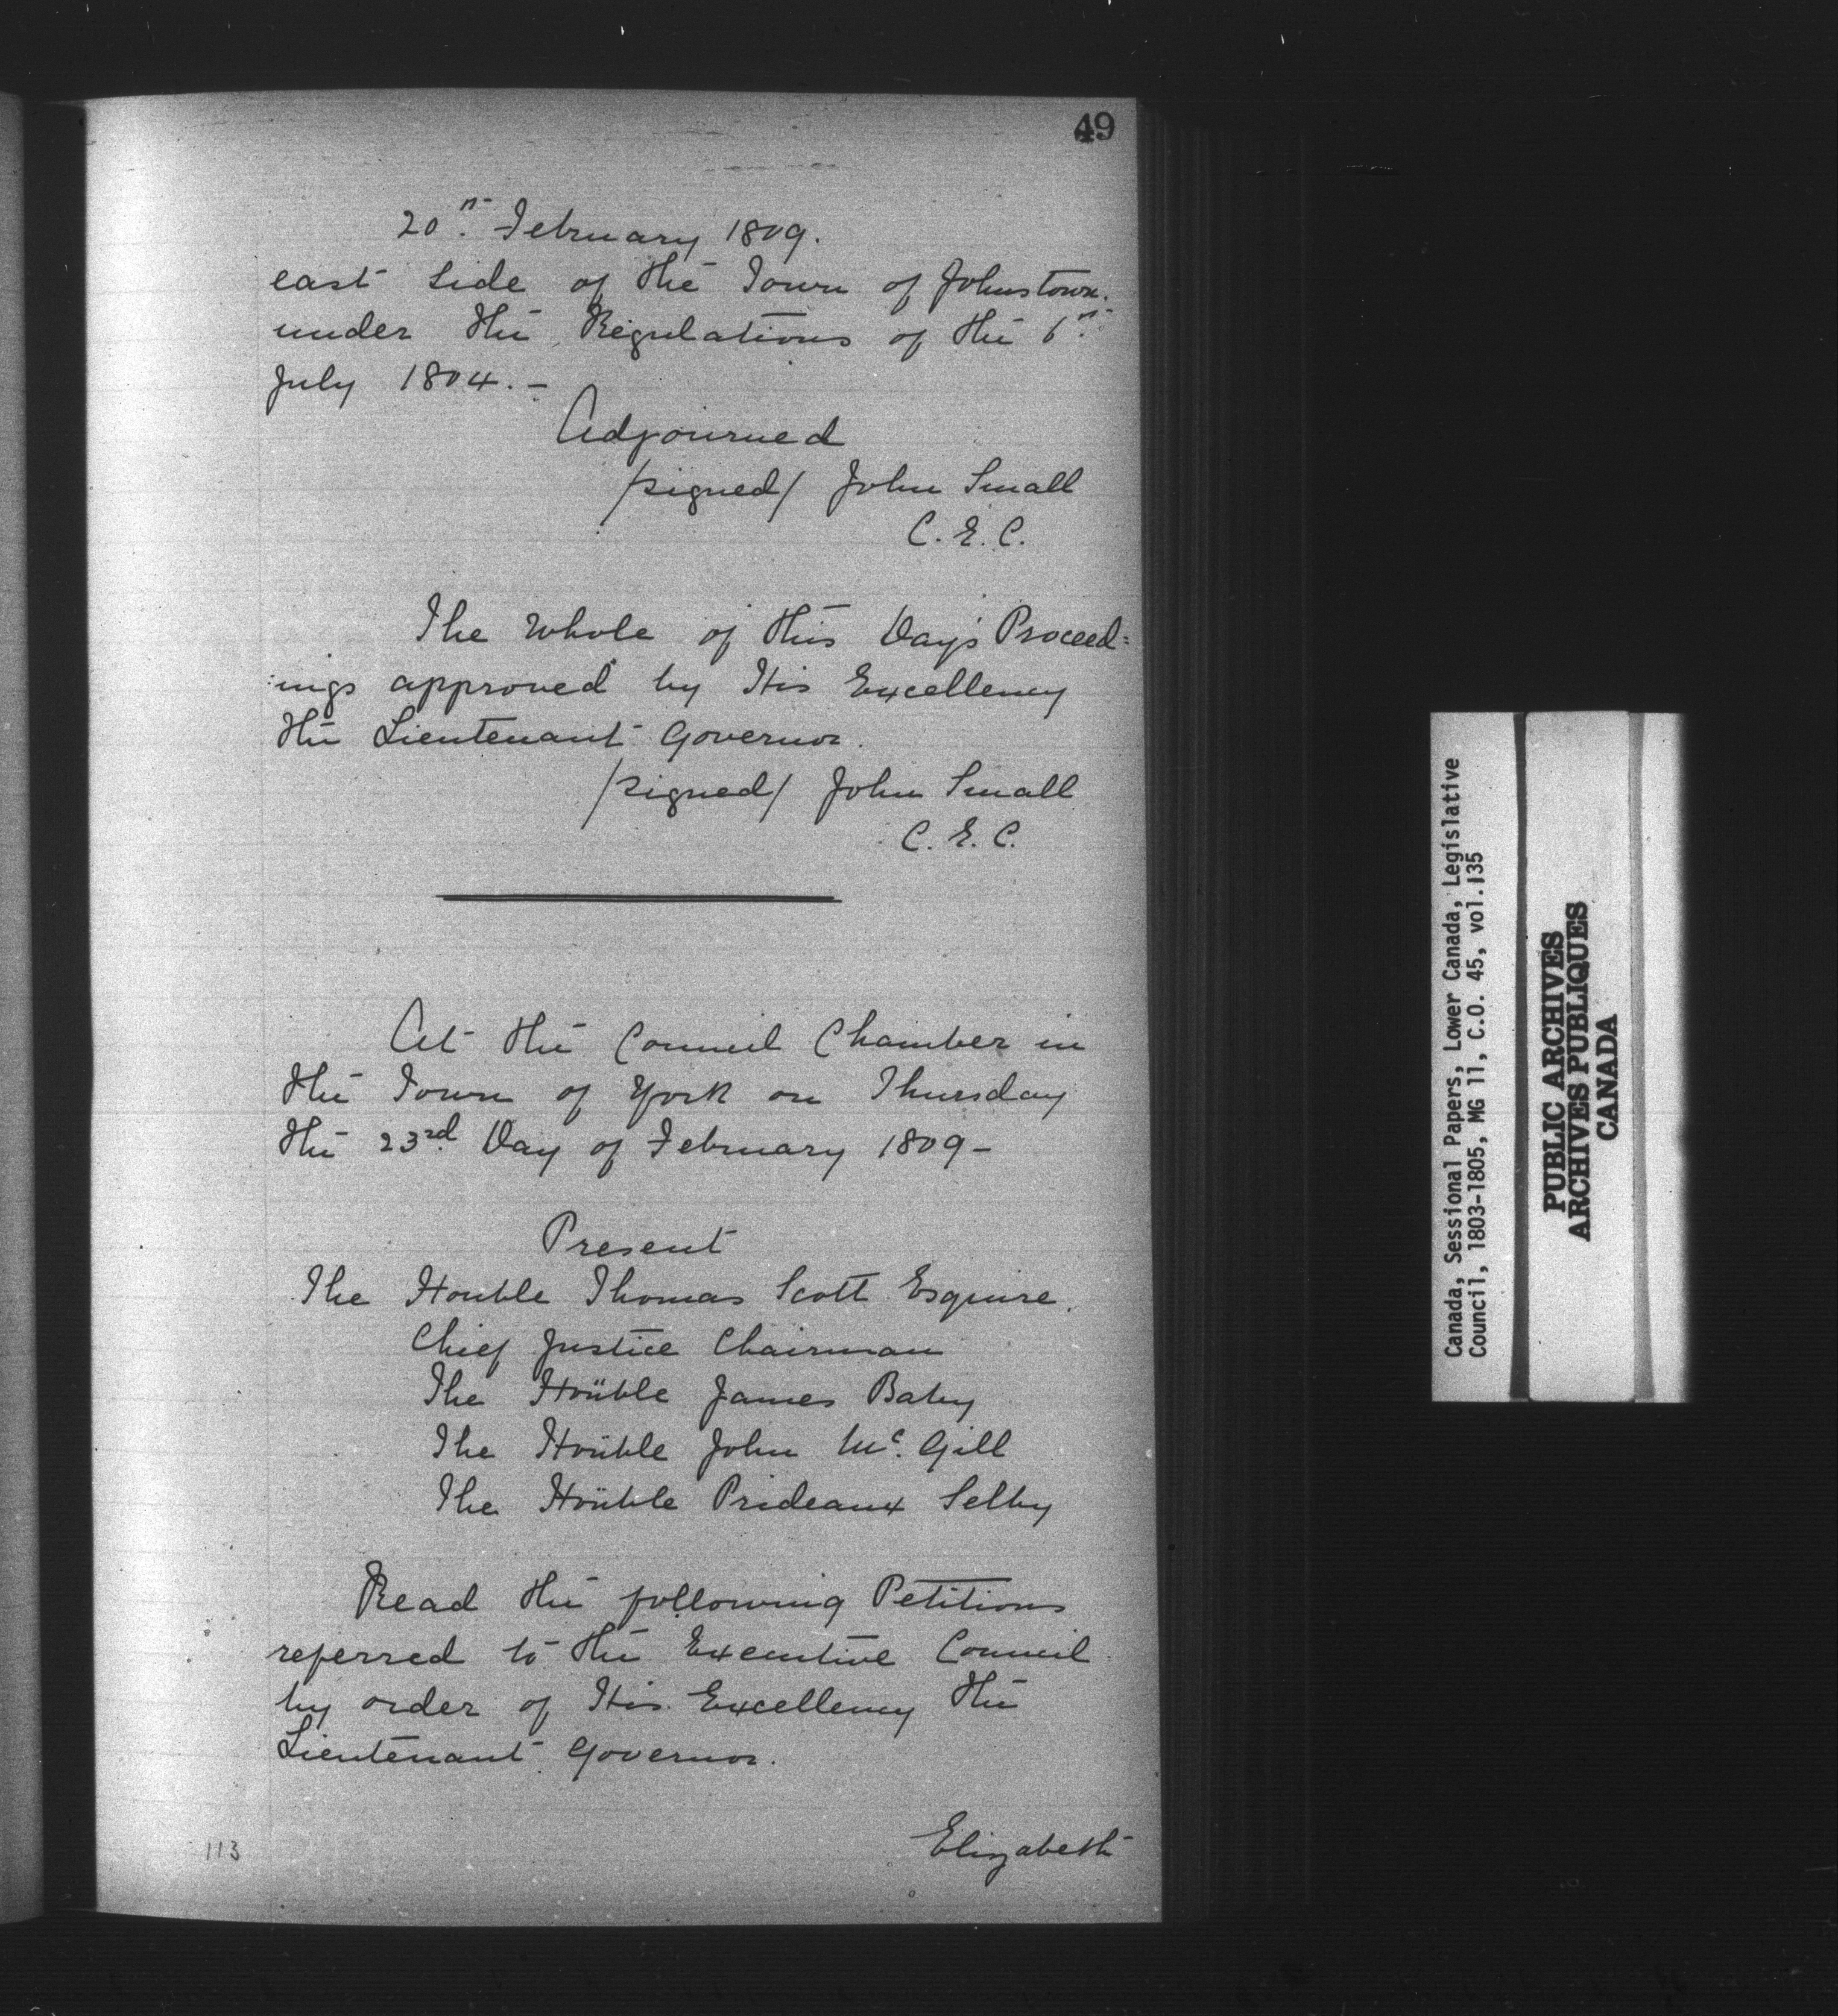 49
20th. February 1809.
east side of the Town of Johnstown.
under the Regulations of the 6th.
July 1804.-
Adjourned
/signed/ John Small
C. E. C.
The whole of this Day's Proceed=
:ings approved by His Excellency
the Lieutenant Governor.
/signed/ John Small
C. E. C.
At the Council Chamber in
the Town of York on Thursday
the 23rd. Day of February 1809-
Present
The Honble Thomas Scott Esquire.
Chief Justice Chairman
The Honble James Baby
The Honble John Mc. Gill
The Honble Prideaux Selby
Read the following Petitions
referred to the Executive Council
by order of His Excellency the
Lieutenant Governor.
Elizabeth
113
Canada, Sessional Papers, Lower Canada, Legislative
Council, 1803-1805, MG 11, C.O. 45, vol.135
PUBLIC ARCHIVES
ARCHIVES PUBLIQUES
CANADA